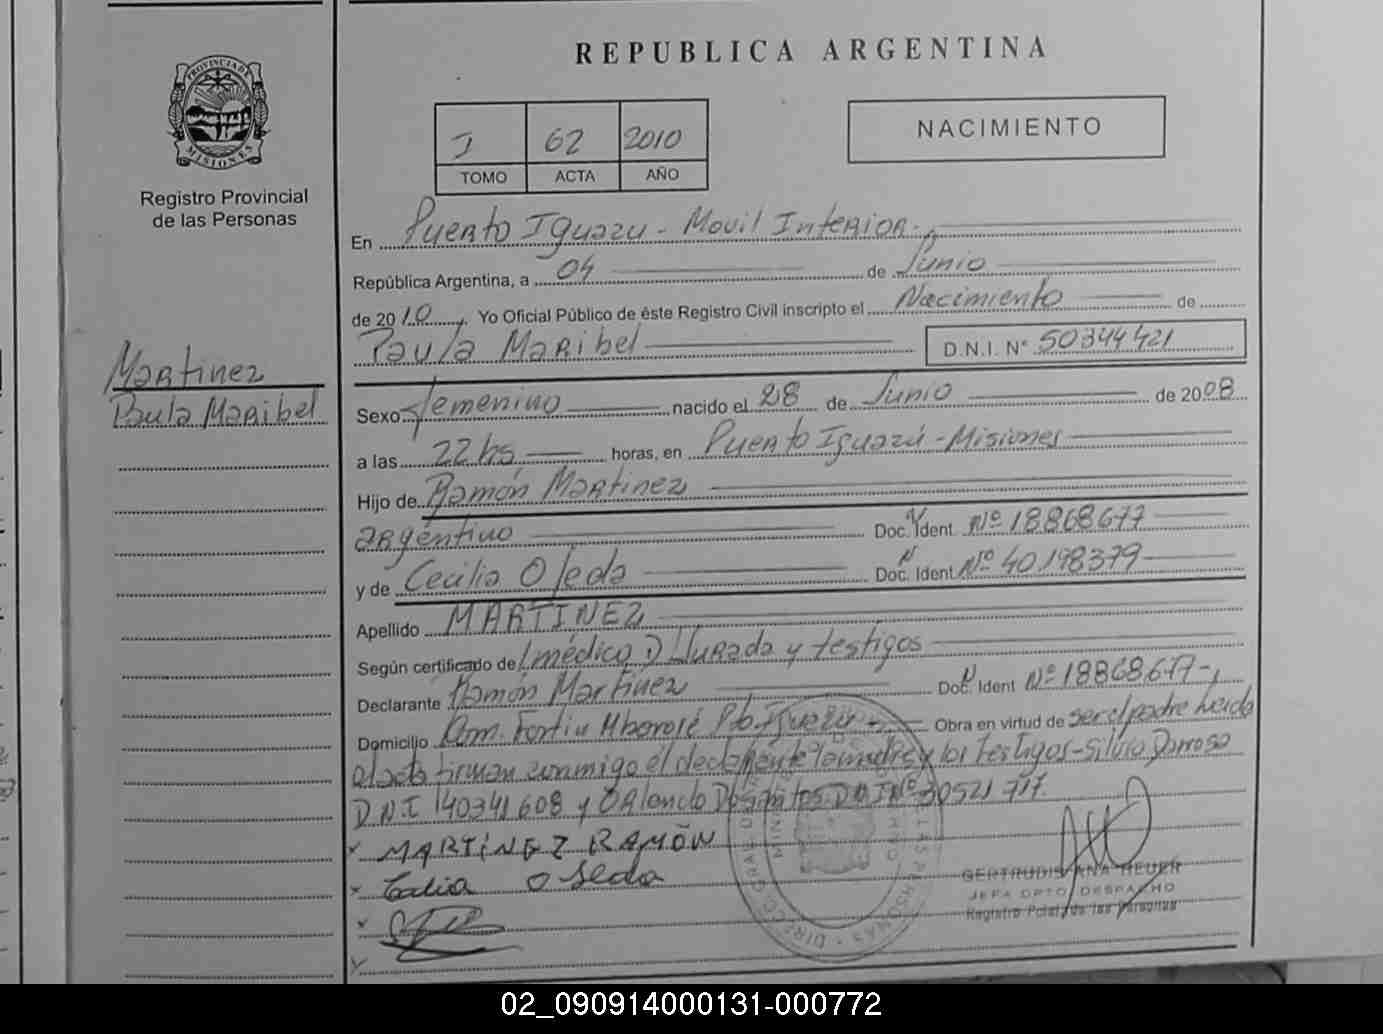 REPUBLICA ARGENTINA
PROVINCIA DE MISIONES
Registro Provincial
de las Personas
I 62 2010
TOMO ACTA AÑO
NACIMIENTO
En Puerto Iguazu - Movil Interior.
República Argentina, a 04 de Junio
de 2010, Yo Oficial Público de éste Registro Civil inscripto el Nacimiento de
Paula Maribel D.N.I. N° 50344421
Martinez
Paula Maribel
Sexo femenino nacido el 28 de Junio de 2008
a las 22 hs horas, en Puerto Iguazú - Misiones
Hijo de Ramón Martinez
argentino Doc. Ident. Nº 18868677
y de Cecilia Ojeda Doc. Ident Nº 40.198379
Apellido MARTINEZ
Según certificado de médico, D Jurada y testigos
Declarante Ramón Martinez Doc. Ident Nº 18868677
Domicilio Dom. Fortin Mbororé Pto. Iguazu Obra en virtud de ser el padre leida
el acta firman conmigo el declarante la madre y los testigos - Silvio
D.N.I 40341608 y Orlando D.N.I Nº 30521717
x MARTÍNEZ RAMÓN
x Cecilia Ojeda
x
GERTRUDIS ANA HEUER
JEFA DPTO DESPACHO
Registro Pcial. de las Personas
02_090914000131-000772